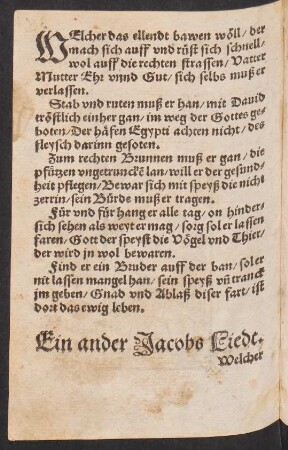 WElcher das ellendt bawen wöll/ der
mach sich auff vnd rüst sich schnell/
wol auff die rechten strassen/ Vatter
Mutter Ehr vnnd Gut/ sich selbs muß er
verlassen.
Stab vnd ruten muß er han/ mit Dauid
tröstlich einher gan/ im weg der Gottes ge-
boten/ Der häfen Egypti achten nicht/ des
fleysch darinn gesoten.
Zum rechten Brunnen muß er gan/ die
pfützen vngetrunckẽ lan/ will er der gesund-
heit pflegen/ Bewar sich mit speyß die nicht
zerrin/ sein Bürde muß er tragen.
Für vnd für hang er alle tag/ on hinder-
sich sehen als weyt er mag/ sorg sol er lassen
faren/ Gott der speyst die Vögel vnd Thier/
der wird jn wol bewaren.
Find er ein Bruder auff der ban/ sol er
nit lassen mangel han/ sein speyß vñ tranck
jm geben/ Gnad vnd Ablaß diser fart/ ist
dort das ewig leben.
Ein ander Jacobs Liedt.
Welcher